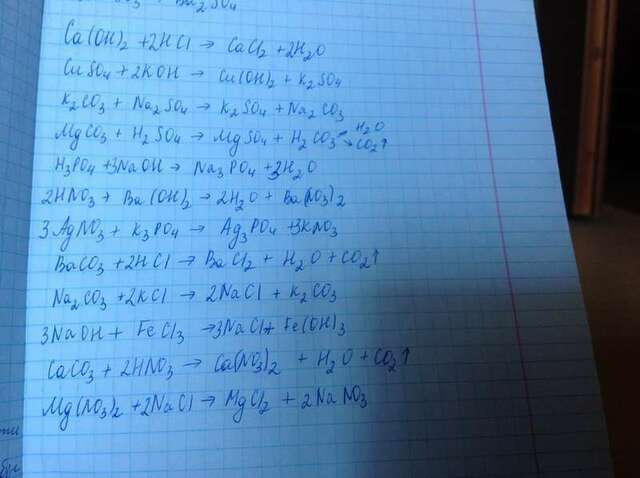 Ba₂SO₄
Ca(OH)₂ + 2HCl → CaCl₂ + 2H₂O
CuSO₄ + 2KOH → Cu(OH)₂ + K₂SO₄
K₂CO₃ + Na₂SO₄ → K₂SO₄ + Na₂CO₃
MgCO₃ + H₂SO₄ → MgSO₄ + H₂CO₃ ↗ H₂O ↘ CO₂↑
H₃PO₄ + 3NaOH → Na₃PO₄ + 3H₂O
2HNO₃ + Ba(OH)₂ → 2H₂O + Ba(NO₃)₂
3AgNO₃ + K₃PO₄ → Ag₃PO₄ + 3KNO₃
BaCO₃ + 2HCl → BaCl₂ + H₂O + CO₂↑
Na₂CO₃ + 2KCl → 2NaCl + K₂CO₃
3NaOH + FeCl₃ → 3NaCl + Fe(OH)₃
CaCO₃ + 2HNO₃ → Ca(NO₃)₂ + H₂O + CO₂↑
Mg(NO₃)₂ + 2NaCl → MgCl₂ + 2NaNO₃